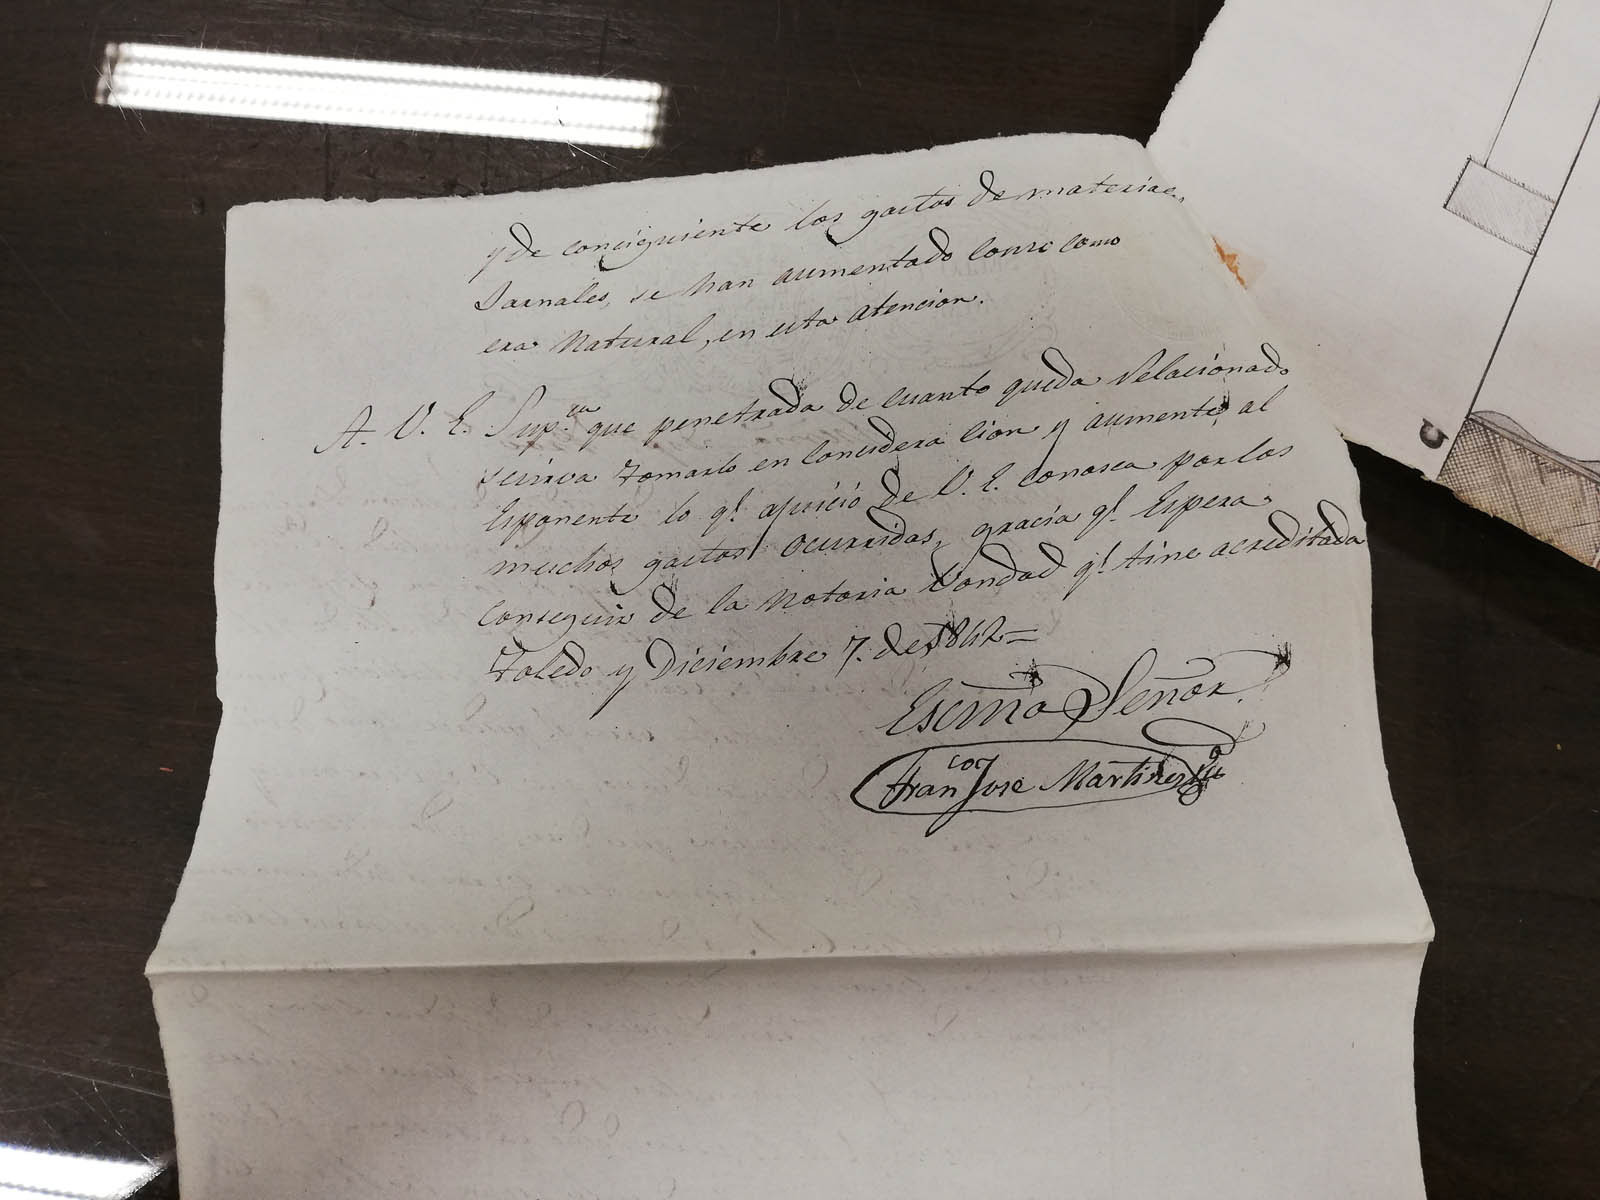 y de consiguiente los gastos de materiae,
Jarnales, se han aumentado como
era Natural, en esta atencion.
A. V. E. Sup.ca que penetrada de cuanto queda Relacionado
se sirva tomarlo en Concidera cion y aumente, al
Esponente lo q.e ajuicio de V. E. conosca por los
muchos gastos ocurridos, gracia q.e Espera
Conseguir de la Notoria Vondad q.e tine acreditada
Toledo y Diciembre 7. de 1842=
Escmo Señor.
Fran.co Jose Martinez